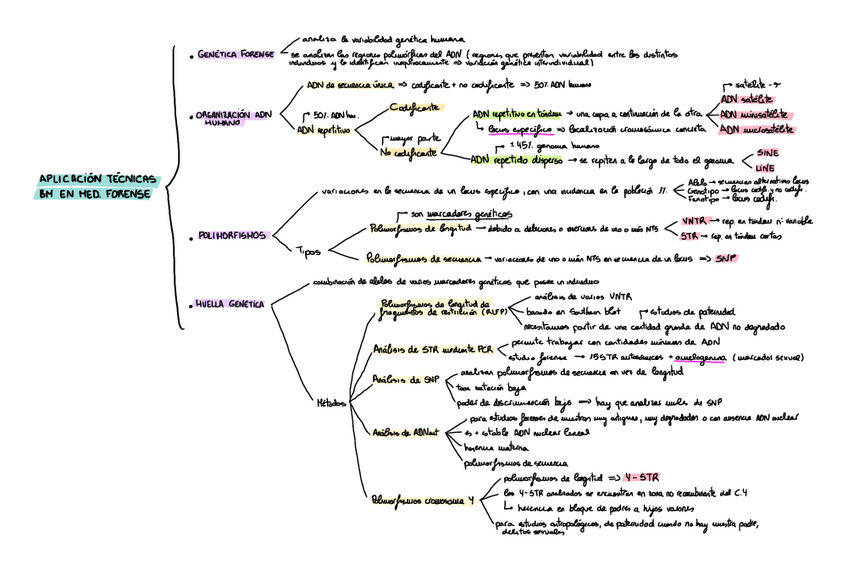 analiza la variabilidad genética humana
• GENÉTICA FORENSE
se analizan las regiones polimórficas del ADN (regiones que presentan variabilidad entre los distintos
individuos y lo identifican inequívocamente => variación genética interindividual)
ADN de secuencia única => codificante + no codificante => 50% ADN humano
• ORGANIZACIÓN ADN
HUMANO
50% ADN hum.
ADN repetitivo
Codificante
mayor parte
No codificante
ADN repetitivo en tándem → una copia a continuación de la otra
locus específico => localización cromosómica concreta
satélite
ADN satélite
ADN minisatélite
ADN microsatélite
± 45% genoma humano
ADN repetido disperso → se repiten a lo largo de todo el genoma
SINE
LINE
APLICACIÓN TÉCNICAS
BM EN MED. FORENSE
• POLIMORFISMOS
variaciones en la secuencia de un locus específico, con una incidencia en la población
Alelo → secuencias alternativas locus
Genotipo → locus codif. y no codif.
Fenotipo → locus codif.
Tipos
son marcadores genéticos
Polimorfismos de longitud → debido a deleciones o inserciones de uno o más NTS
VNTR → rep. en tándem nº variable
STR → rep. en tándem cortas
Polimorfismos de secuencia → variaciones de uno o más NTS en secuencia de un locus => SNP
• HUELLA GENÉTICA
combinación de alelos de varios marcadores genéticos que posee un individuo
Métodos
Polimorfismos de longitud de
fragmentos de restricción (RLFP)
análisis de varios VNTR
basado en Southern blot
estudios de paternidad
necesitamos partir de una cantidad grande de ADN no degradado
Análisis de STR mediante PCR
permite trabajar con cantidades mínimas de ADN
estudio forense → 15 STR autosómicos + amelogenina (marcador sexual)
Análisis de SNP
analizan polimorfismos de secuencia en vez de longitud
tasa mutación baja
poder de discriminación bajo => hay que analizar miles de SNP
Análisis de ADNmt
para estudios forenses de muestras muy antiguas, muy degradadas o con ausencia ADN nuclear
es + estable ADN nuclear lineal
herencia materna
polimorfismos de secuencia
Polimorfismos cromosoma Y
polimorfismos de longitud => Y-STR
los Y-STR analizados se encuentran en zona no recombinante del C.Y
herencia en bloque de padres a hijos varones
para estudios antropológicos, de paternidad cuando no hay muestra padre,
delitos sexuales